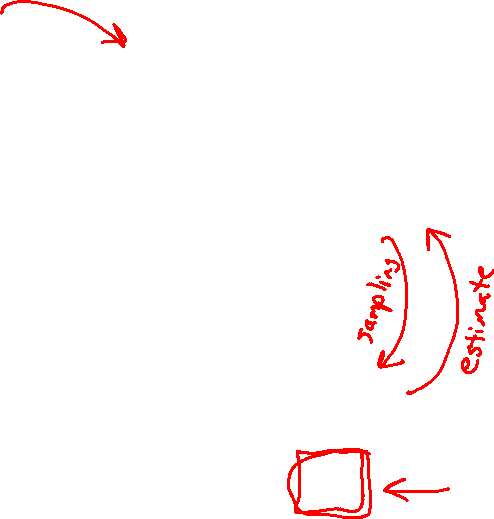 sampling
estimate